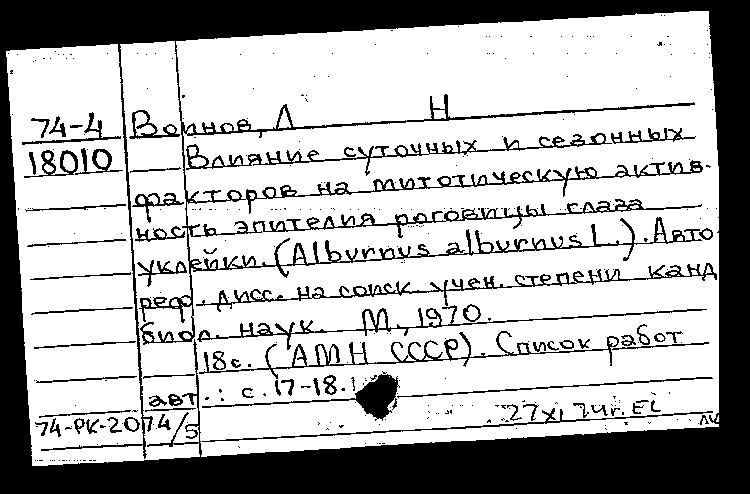 74-4 Воинов, Л Н
18010 Влияние суточных и сезонных
факторов на митотическую актив-
ность эпителия роговицы глаза
уклейки. (Alburnus alburnus L.). Авто
реф. дисс. на соиск учен. степени канд
биол. наук. М., 1970.
18с. (АМН СССР). Список работ
авт.: с. 17-18.
74-РК-2074/5 27 XI 74г. EL